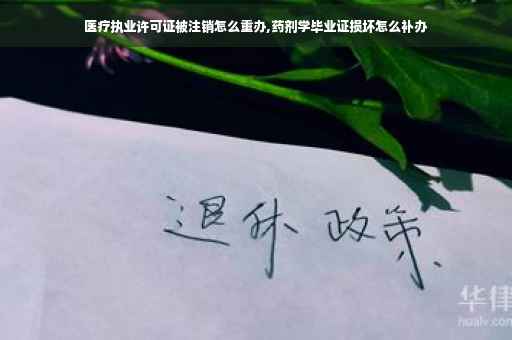 医疗执业许可证被注销怎么重办,药剂学毕业证损坏怎么补办
退休 政策
华律
hualv.com